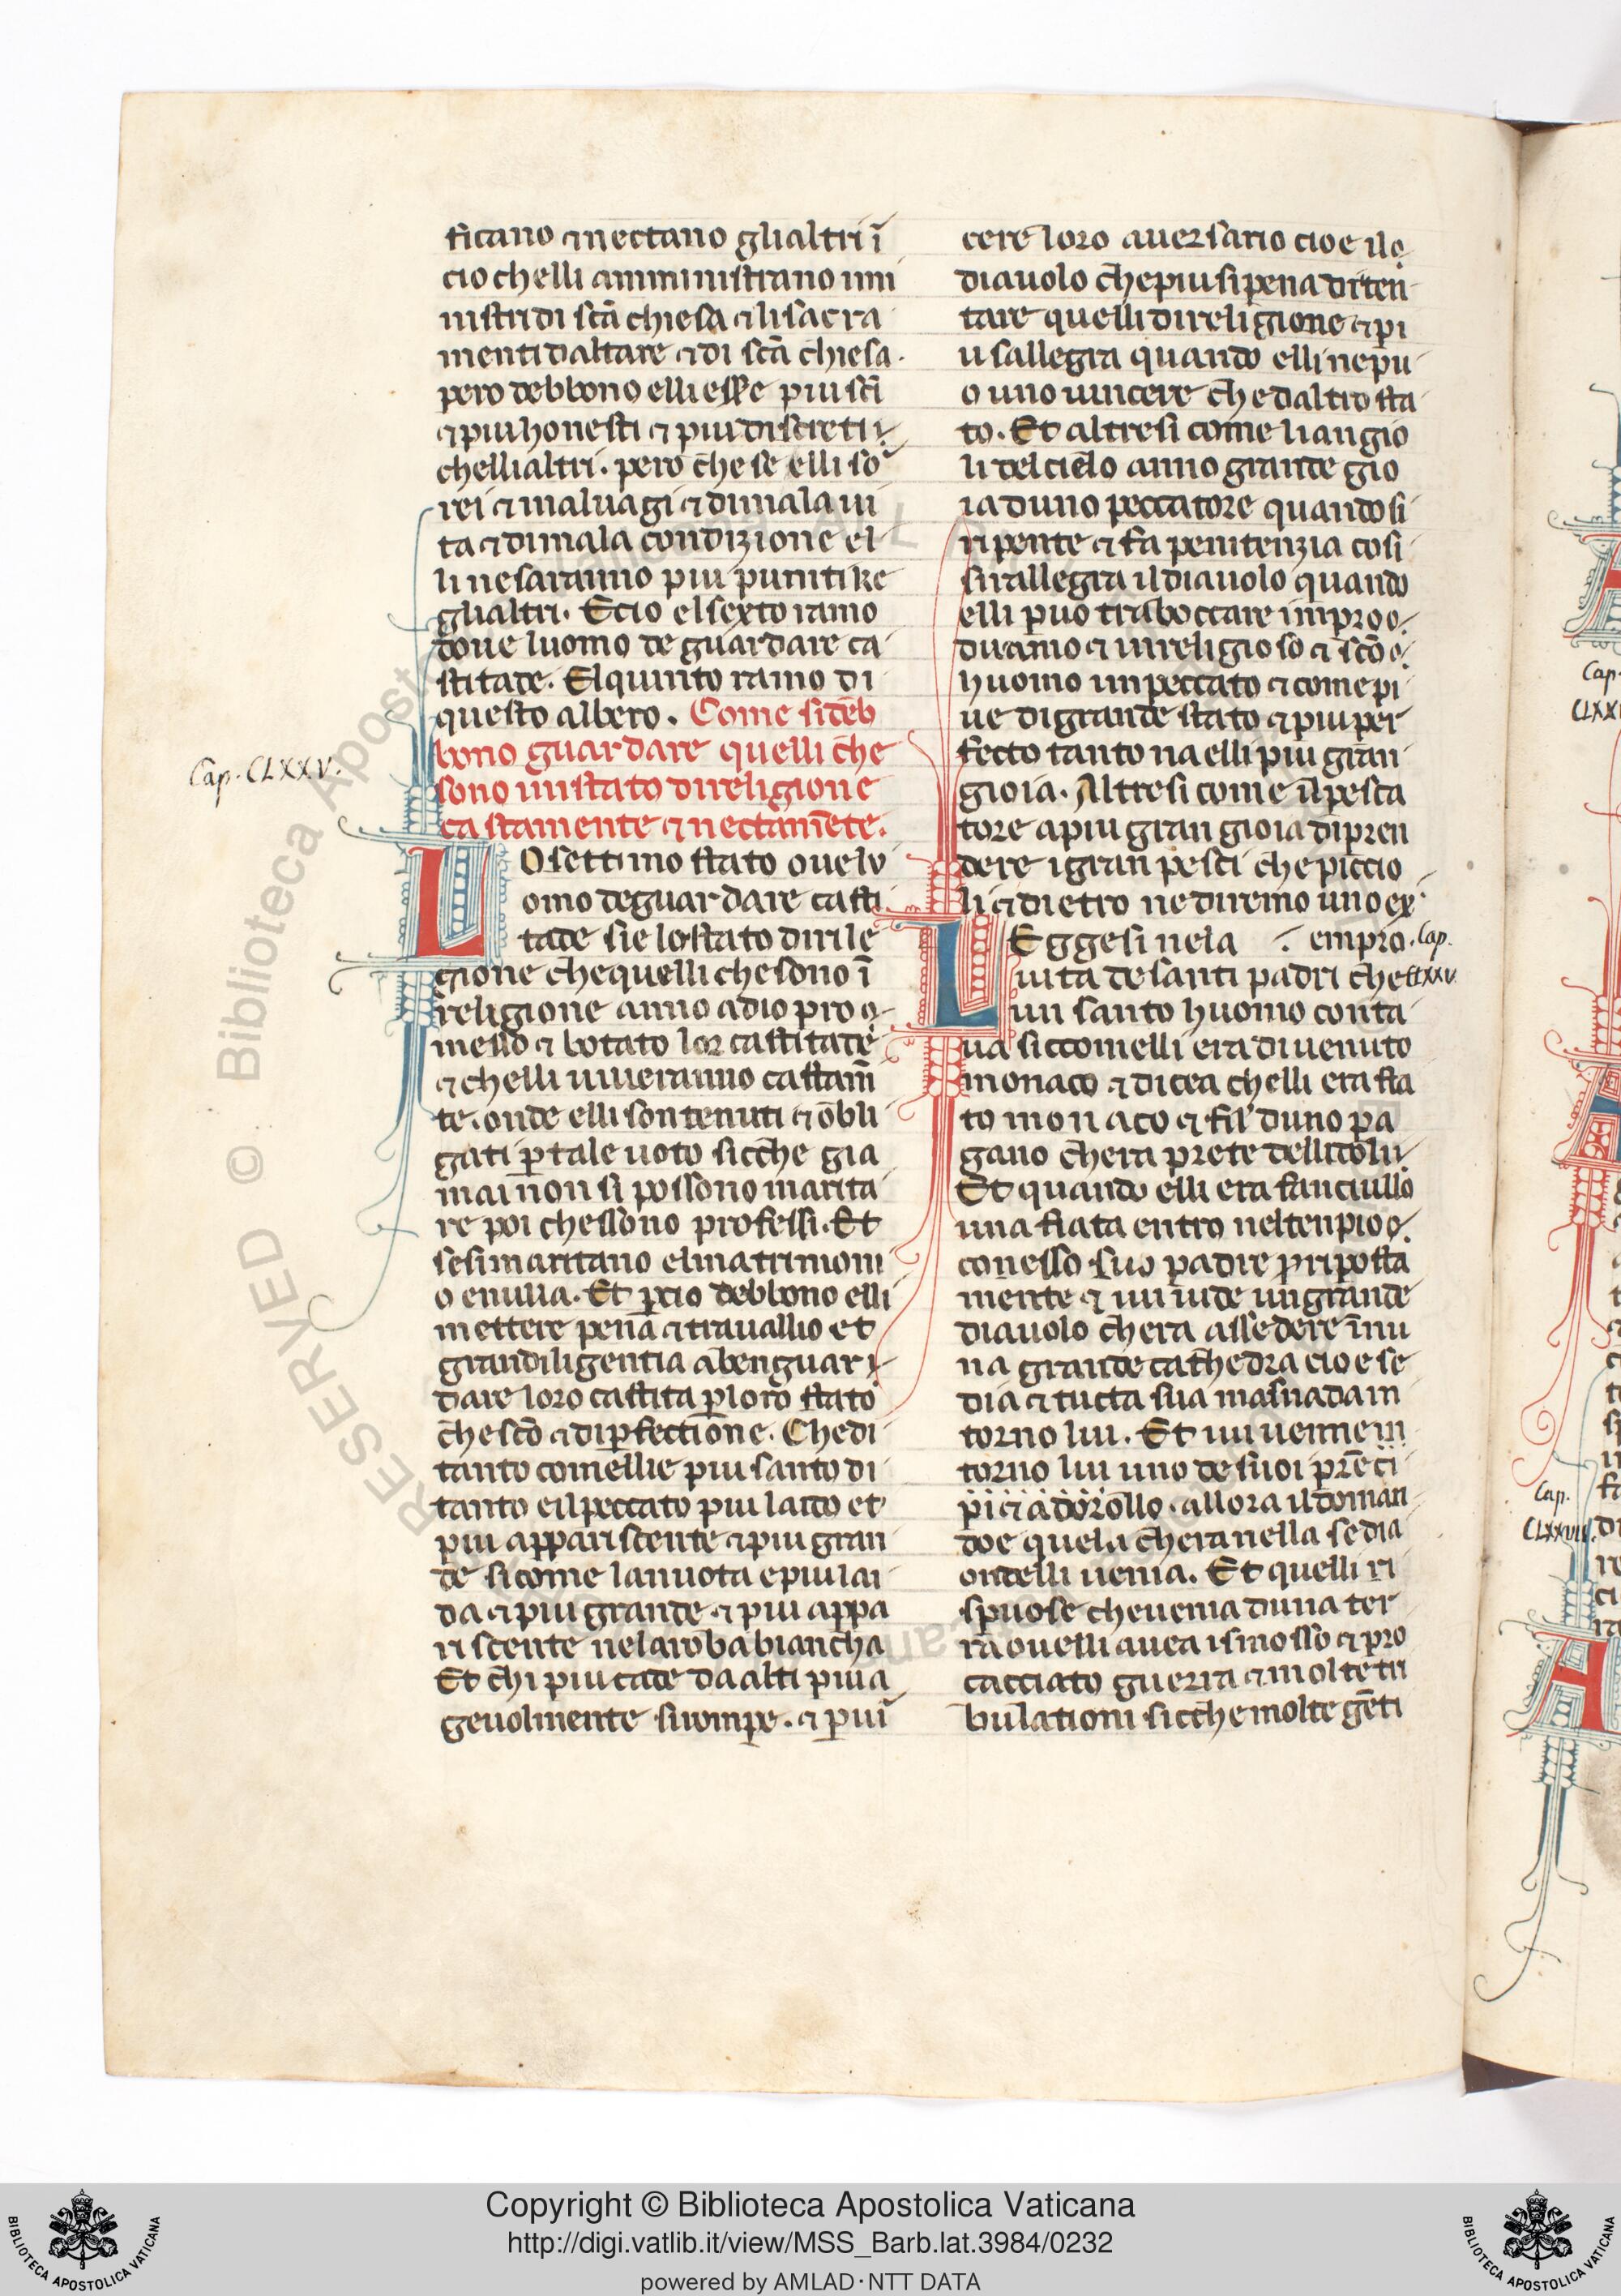 ficano ⁊ nectano glialtri ĩ
cio chelli amministrano imi
nistri di scã chiesa ⁊ lisacra
menti daltare ⁊ di scã chiesa.
pero debbono elli esse piu scĩ
⁊ piu honesti ⁊ piu discreti
chelli altri. pero che se elli so
rei ⁊ maluagi ⁊ dimala ui
ta ⁊ dimala condizione el
li ne saranno piu puniti ke
glialtri. Ecio el sexto ramo
doue luomo de guardare ca
stitade. El quinto ramo di
questo albero. Come si deb
bono guardare quelli che
sono inistato direligione
castamente ⁊ nectamẽte.
Cap. CLXXV.
LO settimo stato oue lu
omo deguardare casti
tade sie lo stato dirile
gione che quelli che sono ĩ
religione anno adio pro
messo ⁊ botato lor castitade
⁊ chelli uiueranno castam̃
te. onde elli son tenuti ⁊ obli
gati ꝑ tale uoto sicche gia
mai non si possono marita
re poi chessono professi. Et
sesi maritano el matrimoni
o enulla. Et ꝑcio debbono elli
mettere pena ⁊ trauallio et
grandiligentia abenguar
dare loro castita ꝑ loro stato
che scõ ⁊ di ꝑfectione. Che di
tanto comellie piu santo di
tanto eil peccato piu laido et
piu appariscente ⁊ piu gran
de sicome lanuota e piu lai
da ⁊ piu grande ⁊ piu appa
riscente nela roba biancha
Et chi piu cade da alti piu a
geuolmente si rompe. ⁊ piu ĩ
cere loro auersario cioe ilo
diauolo che piu si pena diten
tare quelli direligione ⁊ pi
u sallegra quando elli nepu
o uno uincere che daltro sta
to. Et altresi come liangio
li del cielo anno grande gio
ia duno peccatore quando si
ripente ⁊ fa penitenzia cosi
si rallegra il diauolo quando
elli puo trasboccare im pro o
duomo ⁊ in religioso ⁊ scõ
huomo im peccato ⁊ come pi
ue digrande stato ⁊ piu per
fecto tanto na elli piu gran
gioia. Altresi come il pesca
tore a piu gran gioia di pren
dere i gran pesci che piccio
li ⁊ dietro ne diremo uno ex
LEggesi nela .empro.
Cap. CLXXV
uita de santi padri che
un santo huomo conta
ua siccomelli era diuenuto
monaco ⁊ dicea chelli era sta
to monaco ⁊ fil duno pa
gano chera prete dellidoli
Et quando elli era fanciullo
una fiata entro nel tenpio
con esso suo padre ꝑ riposta
mente ⁊ iui uide un grande
diauolo chera assedere ĩ nu
na grande cathedra cioe se
dia ⁊ tucta sua masnada in
torno lui. Et iui uenne in
torno lui uno de suoi prẽci
pi ⁊ adorollo. allora il doman
doe queli chera nella sedia
ondelli uenia. Et quelli ri
spuose che uenia duna ter
ra ouelli auea ismosso ⁊ pro
cacciato guerra ⁊ molte tri
bulationi sicche molte gẽti
Cap.
CLXX
Cap.
CLXXVII.
RESERVED © Biblioteca Apostolica Vaticana
Copyright © Biblioteca Apostolica Vaticana
http://digi.vatlib.it/view/MSS_Barb.lat.3984/0232
powered by AMLAD·NTT DATA
BIBLIOTECA APOSTOLICA VATICANA
BIBLIOTECA APOSTOLICA VATICANA